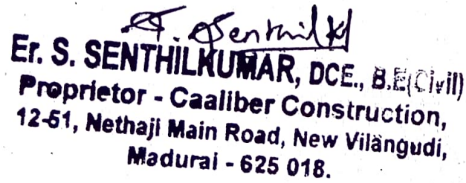 S. Senthilkl
Er. S. SENTHILKUMAR, DCE., B.E(Civil)
Proprietor - Caaliber Construction,
12-51, Nethaji Main Road, New Vilangudi,
Madurai - 625 018.